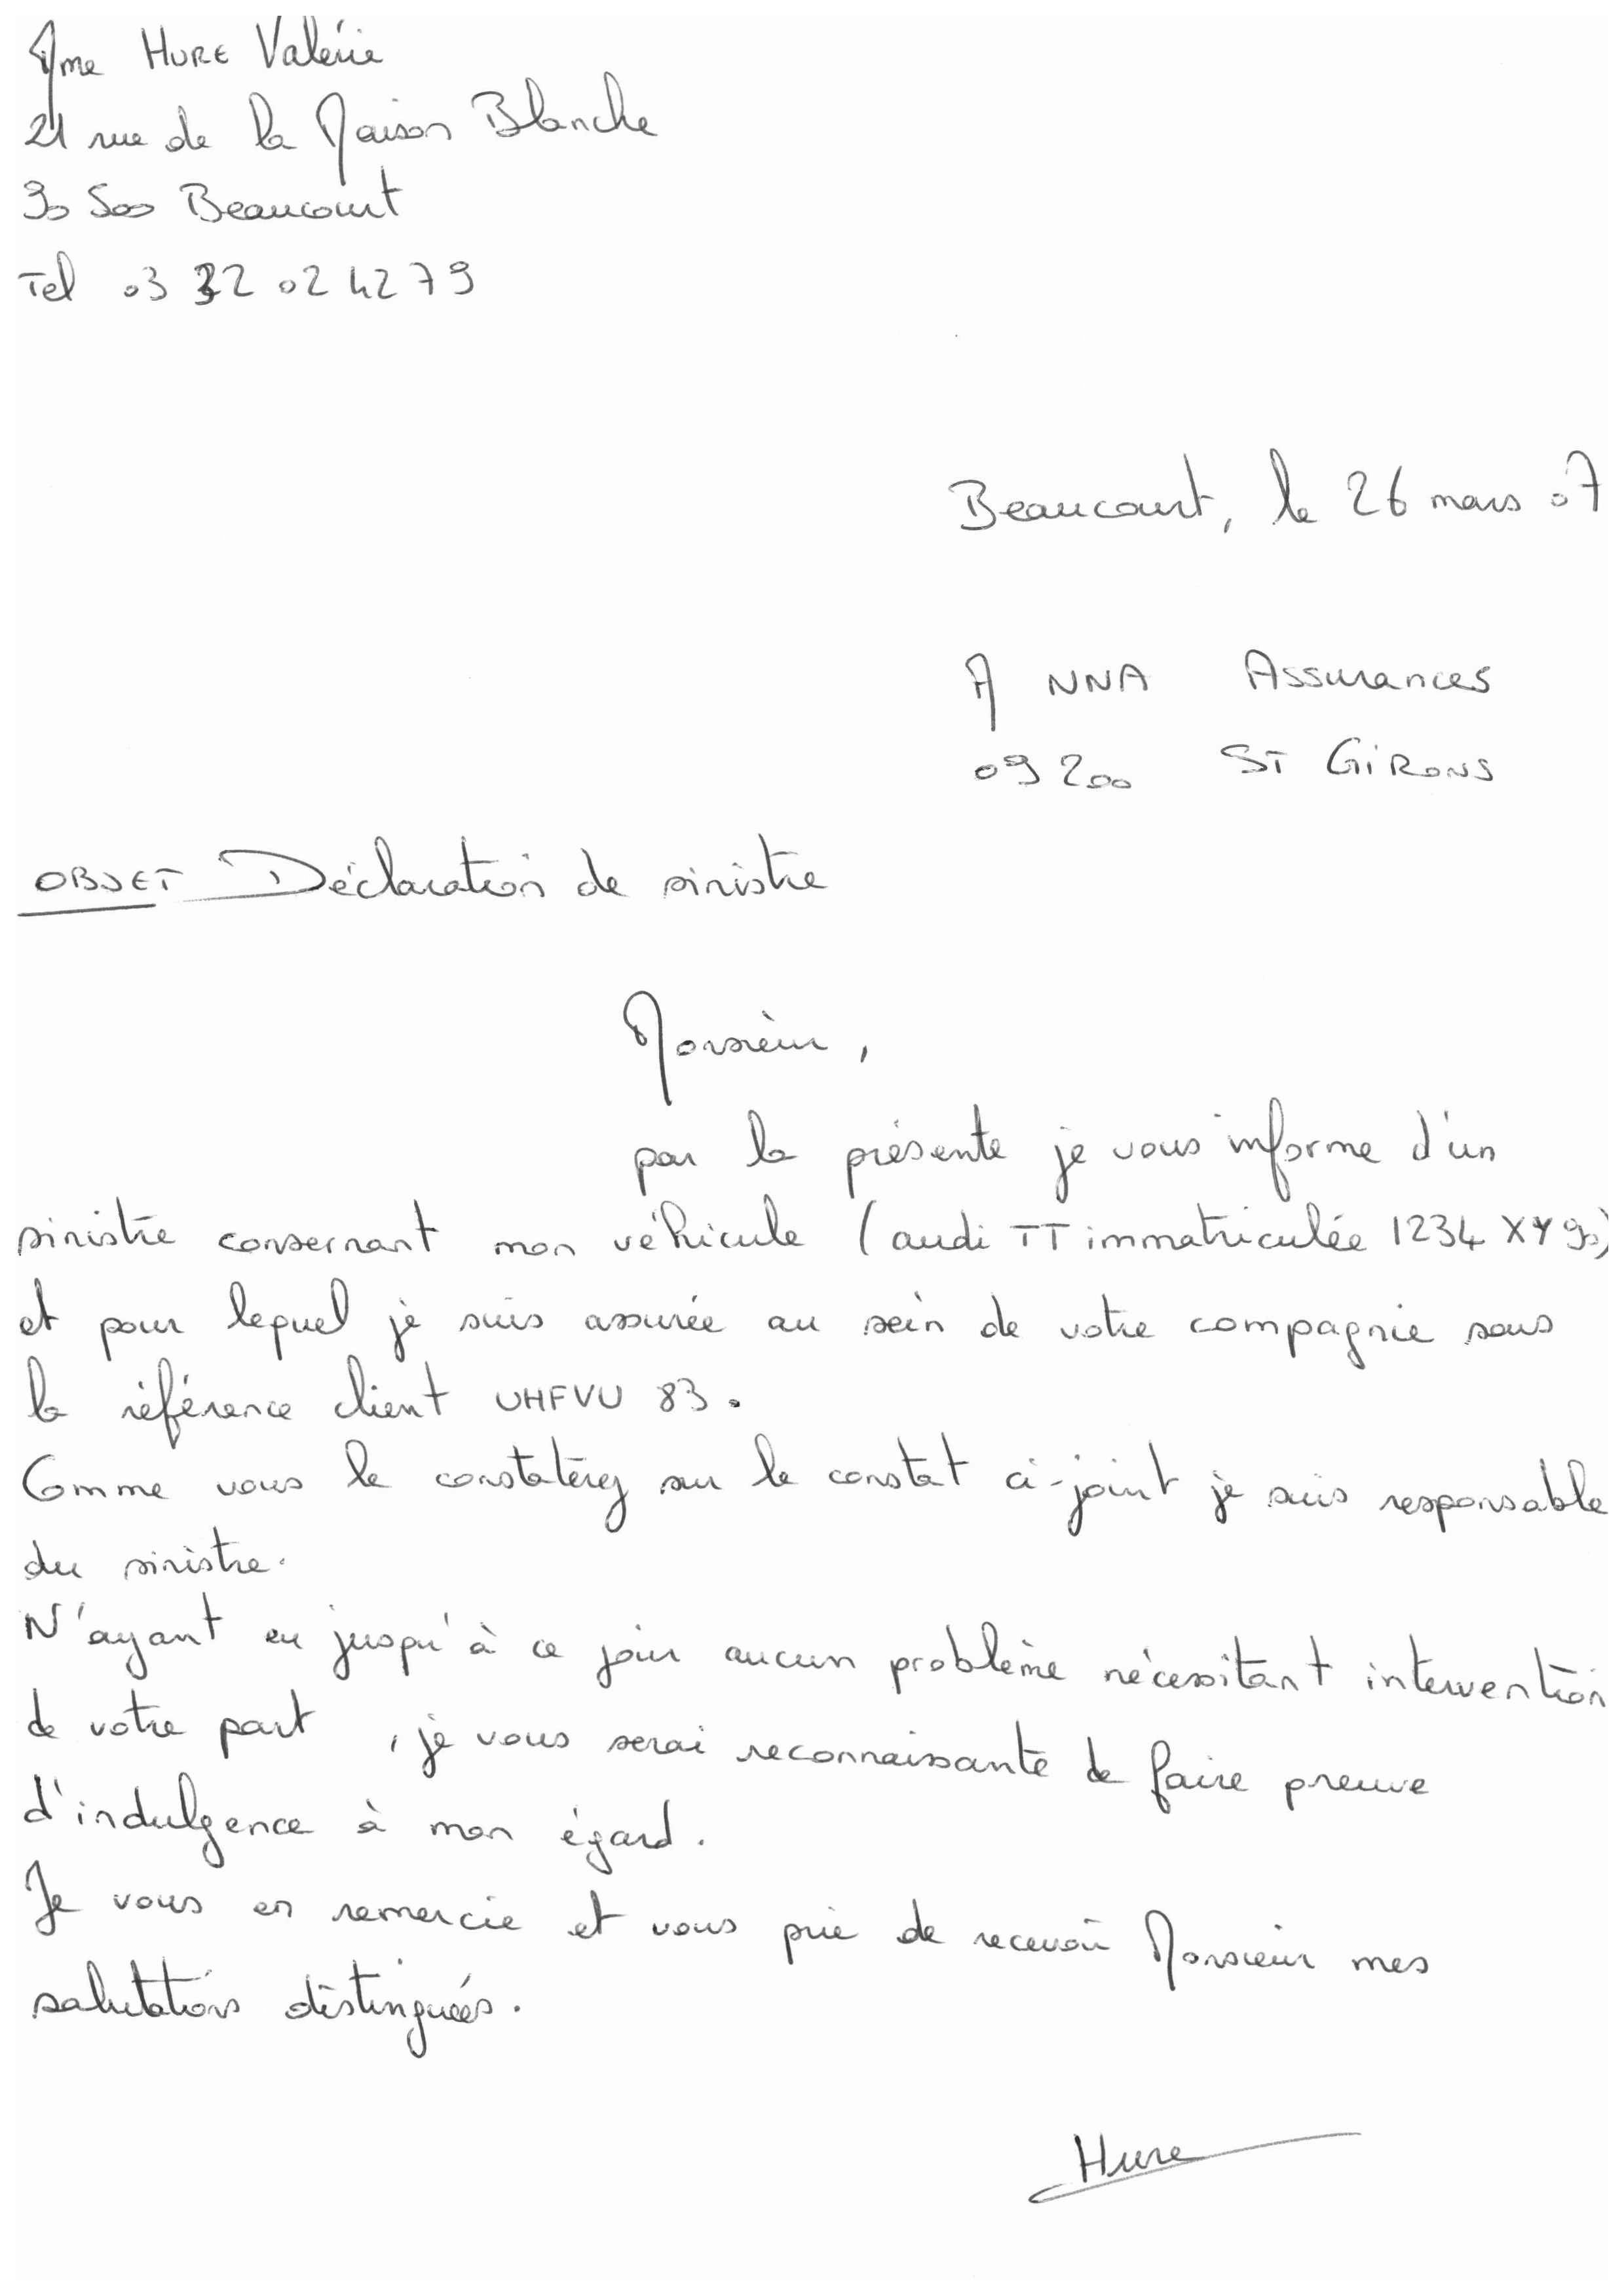 Mme HURE Valérie
21 rue de la Maison Blanche
90 500 Beaucourt
Tel 03 32 02 42 79
Beaucourt, le 26 mars 07
A NNA Assurances
09 200 ST GIRONS
OBJET Déclaration de sinistre
Monsieur,
par la présente je vous informe d'un
sinistre consernant mon véhicule (audi TT immatriculée 1234 XY 90)
et pour lequel je suis assurée au sein de votre compagnie sous
la référence client UHFVU 83.
Comme vous le constaterez sur le constat ci-joint je suis responsable
du sinistre.
N'ayant eu jusqu'à ce jour aucun problème nécessitant intervention
de votre part, je vous serai reconnaissante de faire preuve
d'indulgence à mon égard.
Je vous en remercie et vous prie de recevoir Monsieur mes
salutations distinguées.
Hure